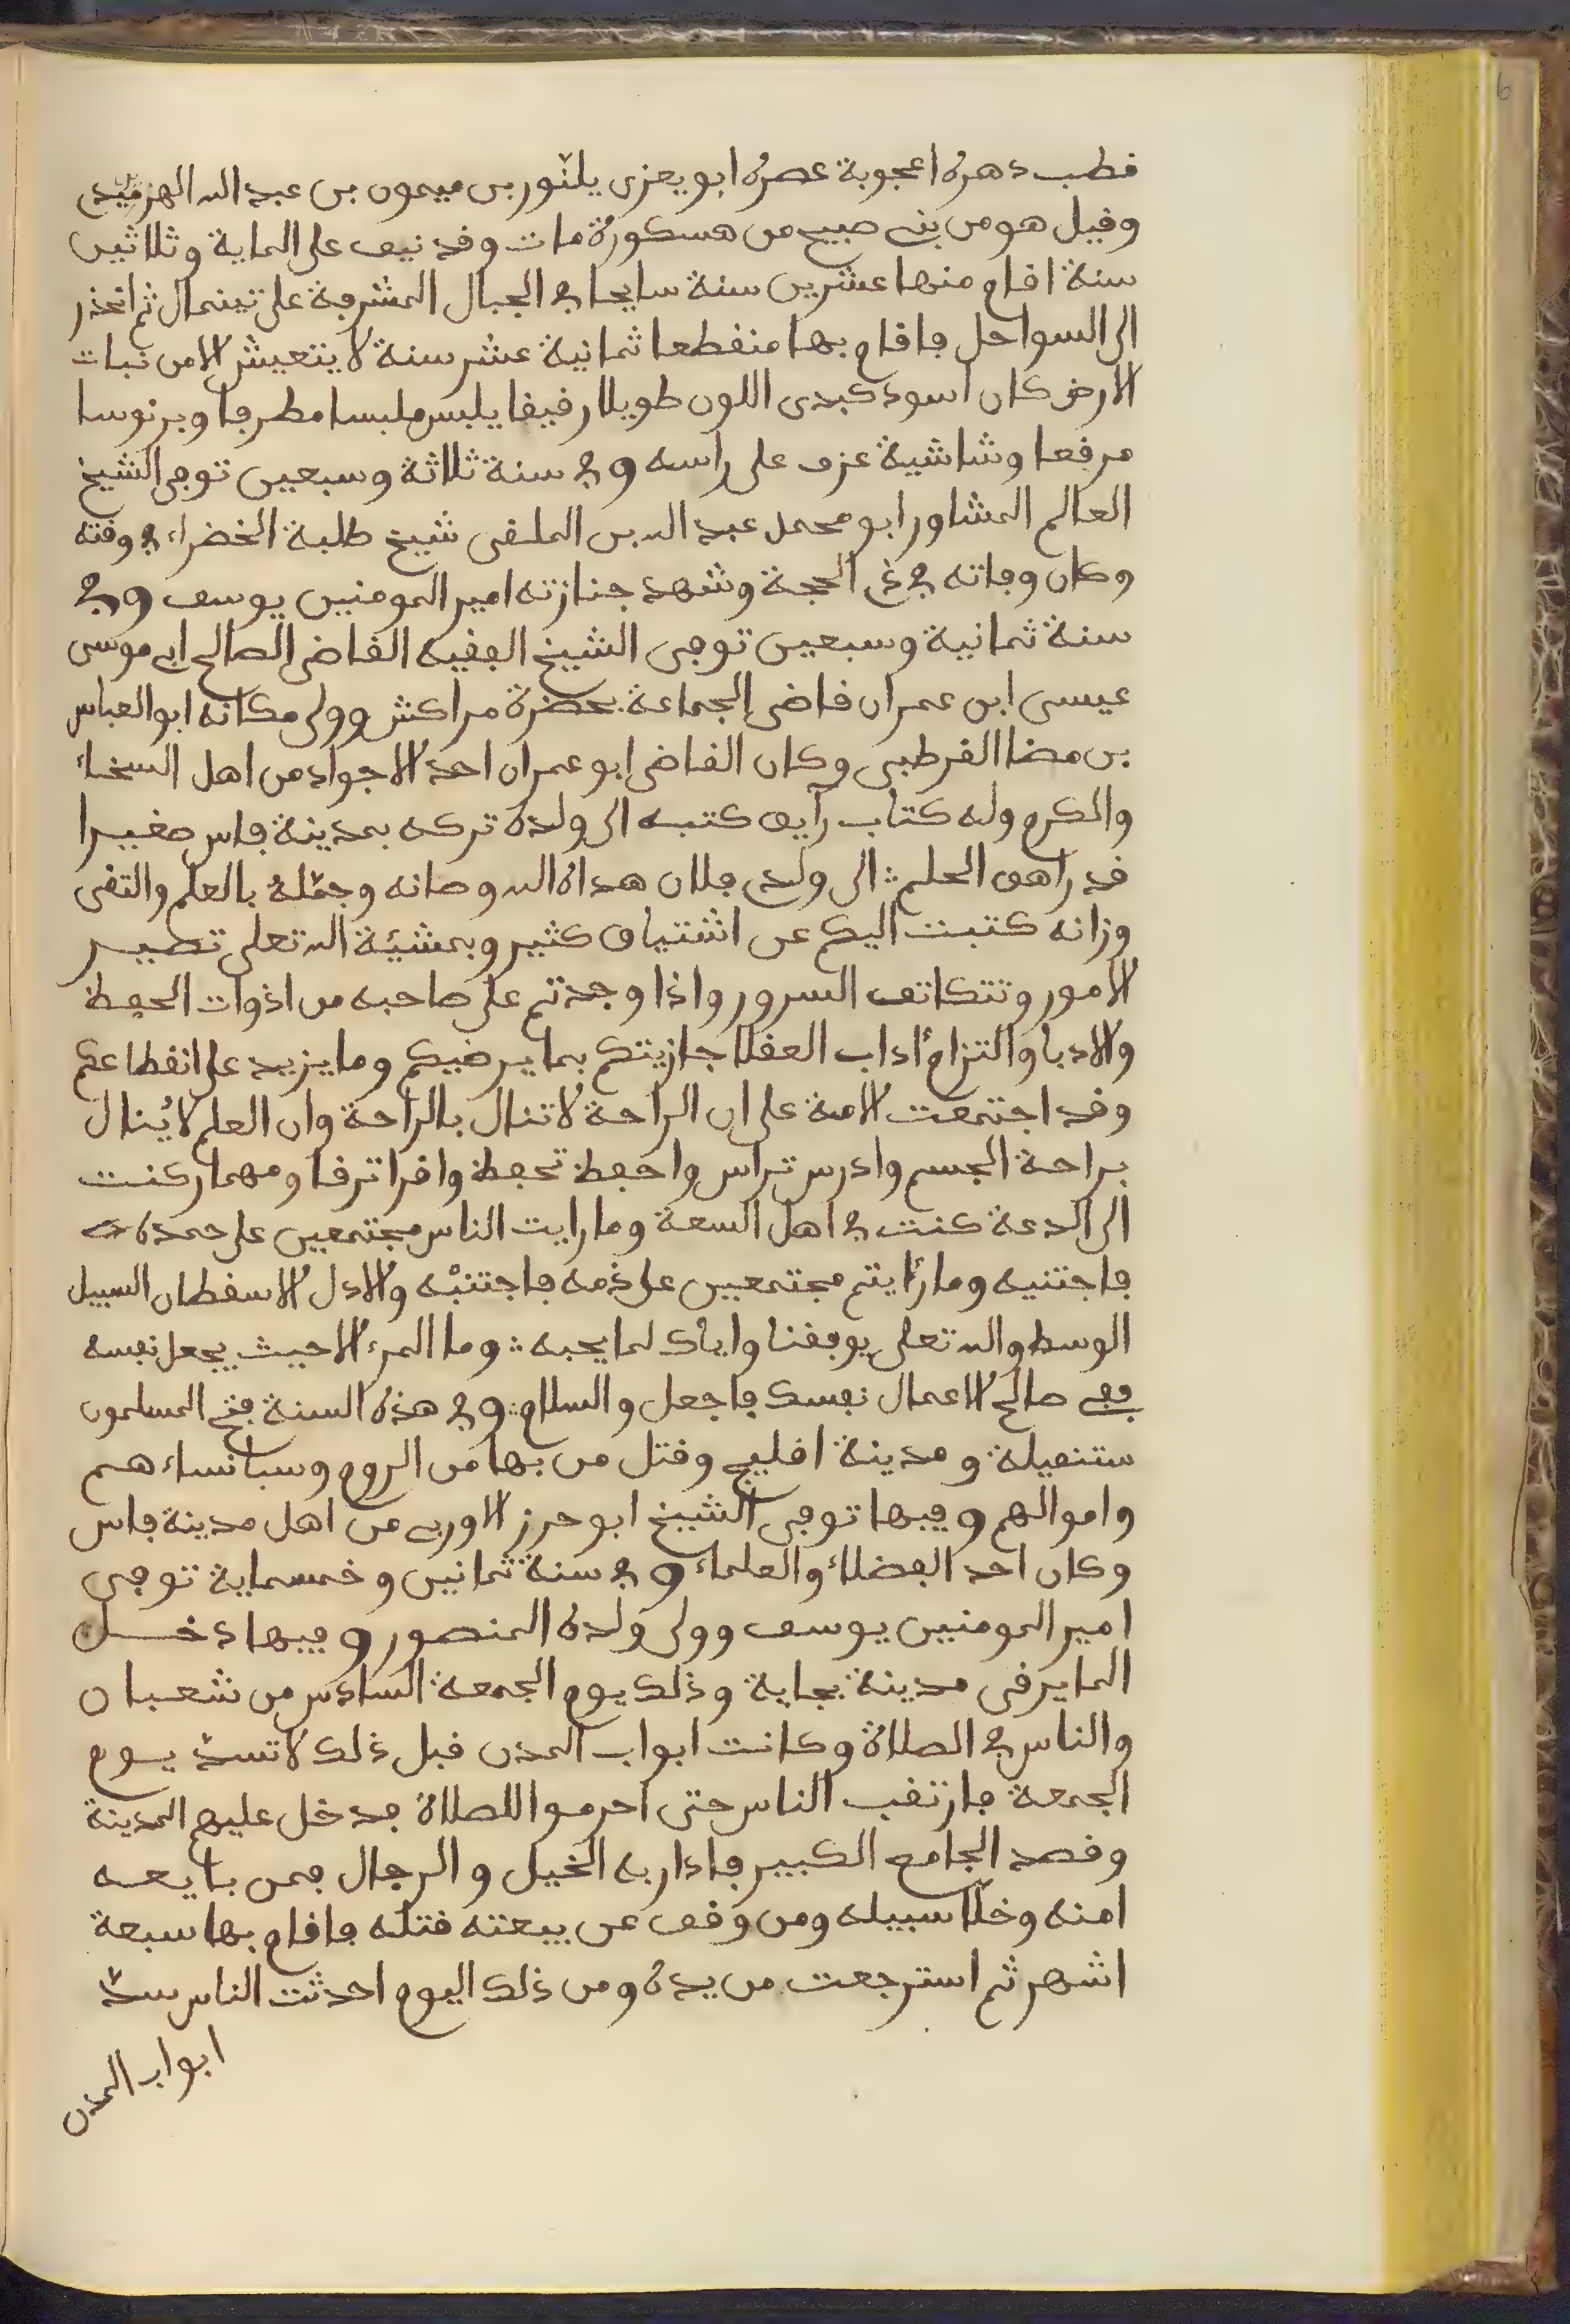 قطب دهره اعجوبة عصره ابو يعزى يلنّور بن ميمون بن عبد الله الهزميرى
وقيل هو من بنى صبيح من هسكورة مات وقد نيف على الماية وثلاثين
سنة اقام منها عشرين سنة سايحا في الجبال المشرفة على تينمال ثم انحذر
الى السواحل فاقام بها منقطعا ثمانية عشر سنة لا يتعيش الا من نبات
الارض كان اسود كبدى اللون طويلا رقيقا يلبس ملبسا مطرفا وبرنوسا
مرقعا وشاشية عزف على راسه وفي سنة ثلاثة وسبعين توفى الشيخ
العالم المشاور ابو محمد عبد الله بن الملقى شيخ طلبة الخضراء في وقته
وكان وفاته في ذى الحجة وشهد جنازته امير المومنين يوسف وفي
سنة ثمانية وسبعين توفى الشيخ الفقيه القاضى الصالح ابى موسى
عيسى ابن عمران قاضى الجماعة بحضرة مراكش وولى مكانه ابو العباس
بن مضا القرطبى وكان القاضى ابو عمران احد الاجواد من اهل السخاء
والكرم وله كتاب رآيق كتبه الى ولده تركه بمدينة فاس صغيرا
قد راهق الحلم : الى ولدى فلان هداه الله وصانه وجمّله بالعلم والتقى
وزانه كتبت اليكم عن اشتياق كثير وبمشيئة الله تعلى تصير
الامور وتتكاتف السرور واذا وجدتم على صاحبه من اذوات الحفظة
والادبا والتزام أداب العقلا جازيتكم بما يرضيكم وما يزيد على انقطاعكم
وقد اجتمعت الامة على ان الراحة لا تنال بالراحة وان العلم لا يُنال
براحة الجسم وادرس تراس واحفظ تحفظ واقرا ترقا ومهما ركنت
الى الدعة كنت في اهل السعة وما رايت الناس مجتمعين على حمده
فاجتنيه وما رأيتم مجتمعين على ذمه فاجتنبْه والادل الاسقطان السبيل
الوسط والله تعلى يوفقنا واياك لما يحبه : وما المرء الا حيث يجعل نفسه
ففى صالح الاعمال نفسك فاجعل والسلام : وفي هذه السنة فتح المسلمون
ستنفيلة ومدينة اقليج وقتل من بها من الروم وسبا نساءهم
واموالهم وفيها توفى الشيخ ابو حرز الاوربى من اهل مدينة فاس
وكان احد الفضلاء والعلماء وفي سنة ثمانين وخمسماية توفى
امير المومنين يوسف وولى ولده المنصور وفيها دخل
المايرقى مدينة بجاية وذلك يوم الجمعة السادس من شعبان
والناس في الصلاة وكانت ابواب المدن قبل ذلك لا تسدّ يوم
الجمعة فارتقب الناس حتى احرموا للصلاة فدخل عليهم المدينة
وقصد الجامع الكبير فادار به الخيل والرجال فمن بايعه
امنه وخلّا سبيله ومن وقف عن بيعته قتله فاقام بها سبعة
اشهر ثم استرجعت من يده ومن ذلك اليوم احدثت الناس سدّ
ابواب المدن